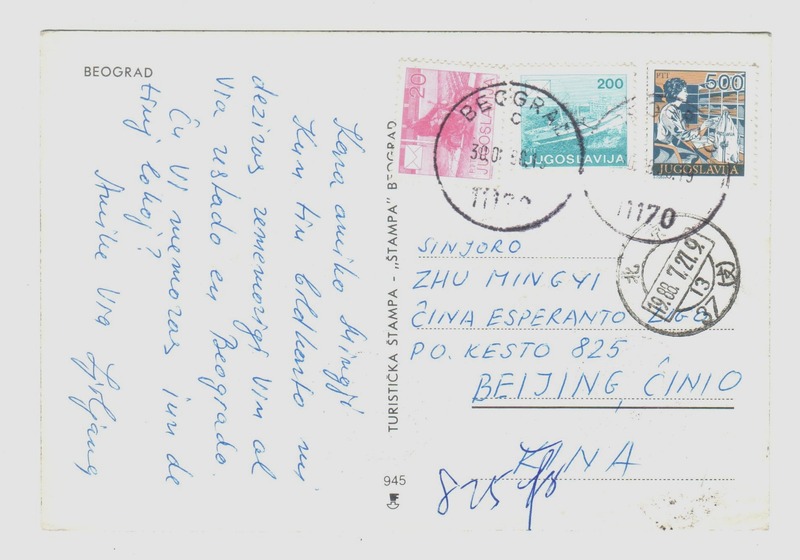 BEOGRAD
Kara amiko Mingji
Kun tiu bildkarto mi
deziras rememorigi Vin al
Via restado en Beogrado.
Ĉu Vi memoras iun de
tiuj lokoj?
Amike Via
TURISTIČKA ŠTAMPA - „ŠTAMPA” BEOGRAD
945
20
JUGOSLAVIJA
200
JUGOSLAVIJA
PTT
500
JUGOSLAVIJA
BEOGRAD
11170
北
1988.7.21.9
13
SINJORO
ZHU MINGYI
ĈINA ESPERANTO
PO. KESTO 825
BEIJING, ĈINIO
KINA
825